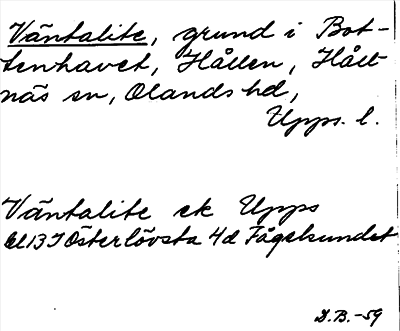 Väntalite, grund i Bot-
tenhavet, Hållen, Hållnäs sn, Olands hd,
Upps. l.
Väntalite ek Upps
13I Österlövsta 4d Fågelsundet
D.B.-59